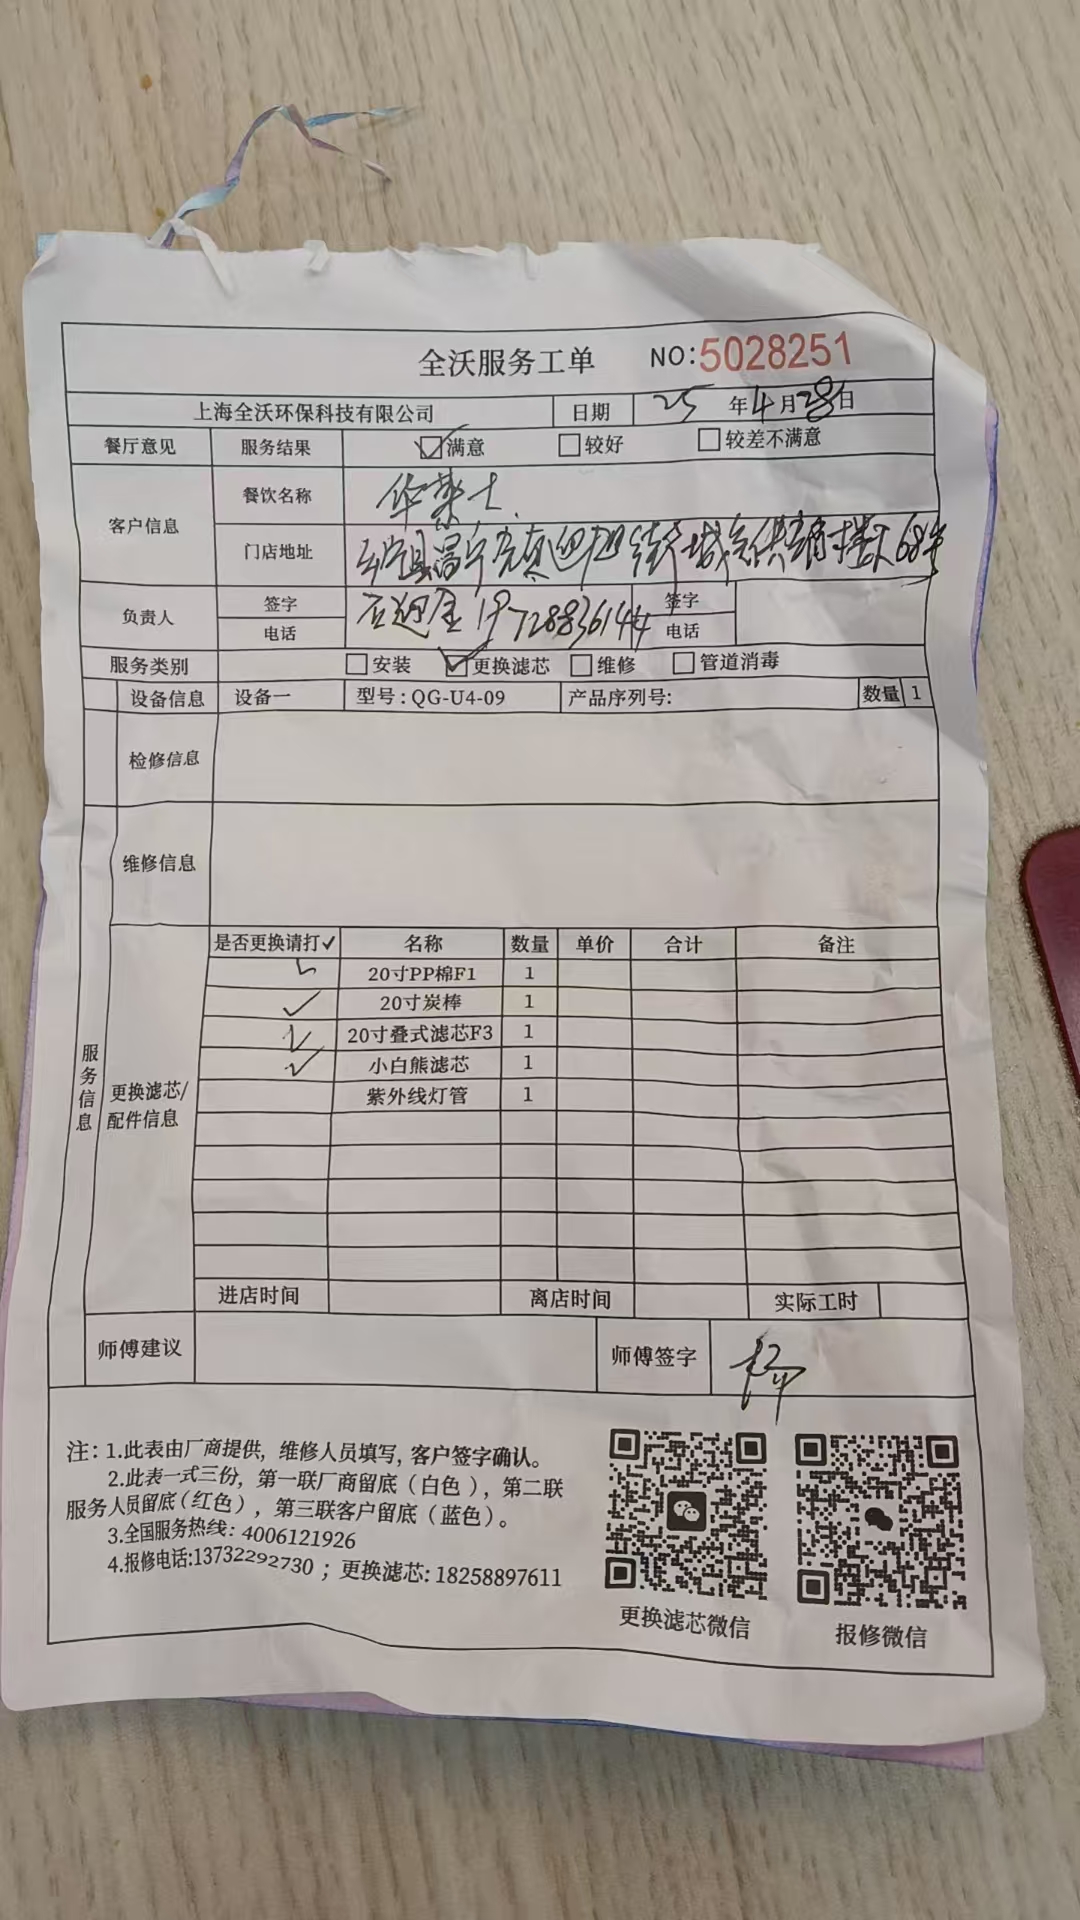 全沃服务工单 NO:5028251
上海全沃环保科技有限公司 日期 25年4月28日
餐厅意见 服务结果 ☑满意 □较好 □较差不满意
客户信息 餐饮名称 华莱士
门店地址 县昌宁 街 68号
负责人 签字 签字
电话 19728836144 电话
服务类别 □安装 ☑更换滤芯 □维修 □管道消毒
设备信息 设备一 型号:QG-U4-09 产品序列号: 数量 1
检修信息
维修信息
服务信息
更换滤芯/配件信息
是否更换请打✓ 名称 数量 单价 合计 备注
✓ 20寸PP棉F1 1
✓ 20寸炭棒 1
✓ 20寸叠式滤芯F3 1
✓ 小白熊滤芯 1
紫外线灯管 1
进店时间 离店时间 实际工时
师傅建议 师傅签字
注:1.此表由厂商提供,维修人员填写,客户签字确认。
2.此表一式三份,第一联厂商留底(白色),第二联
服务人员留底(红色),第三联客户留底(蓝色)。
3.全国服务热线:4006121926
4.报修电话:13732292730;更换滤芯:18258897611
更换滤芯微信 报修微信